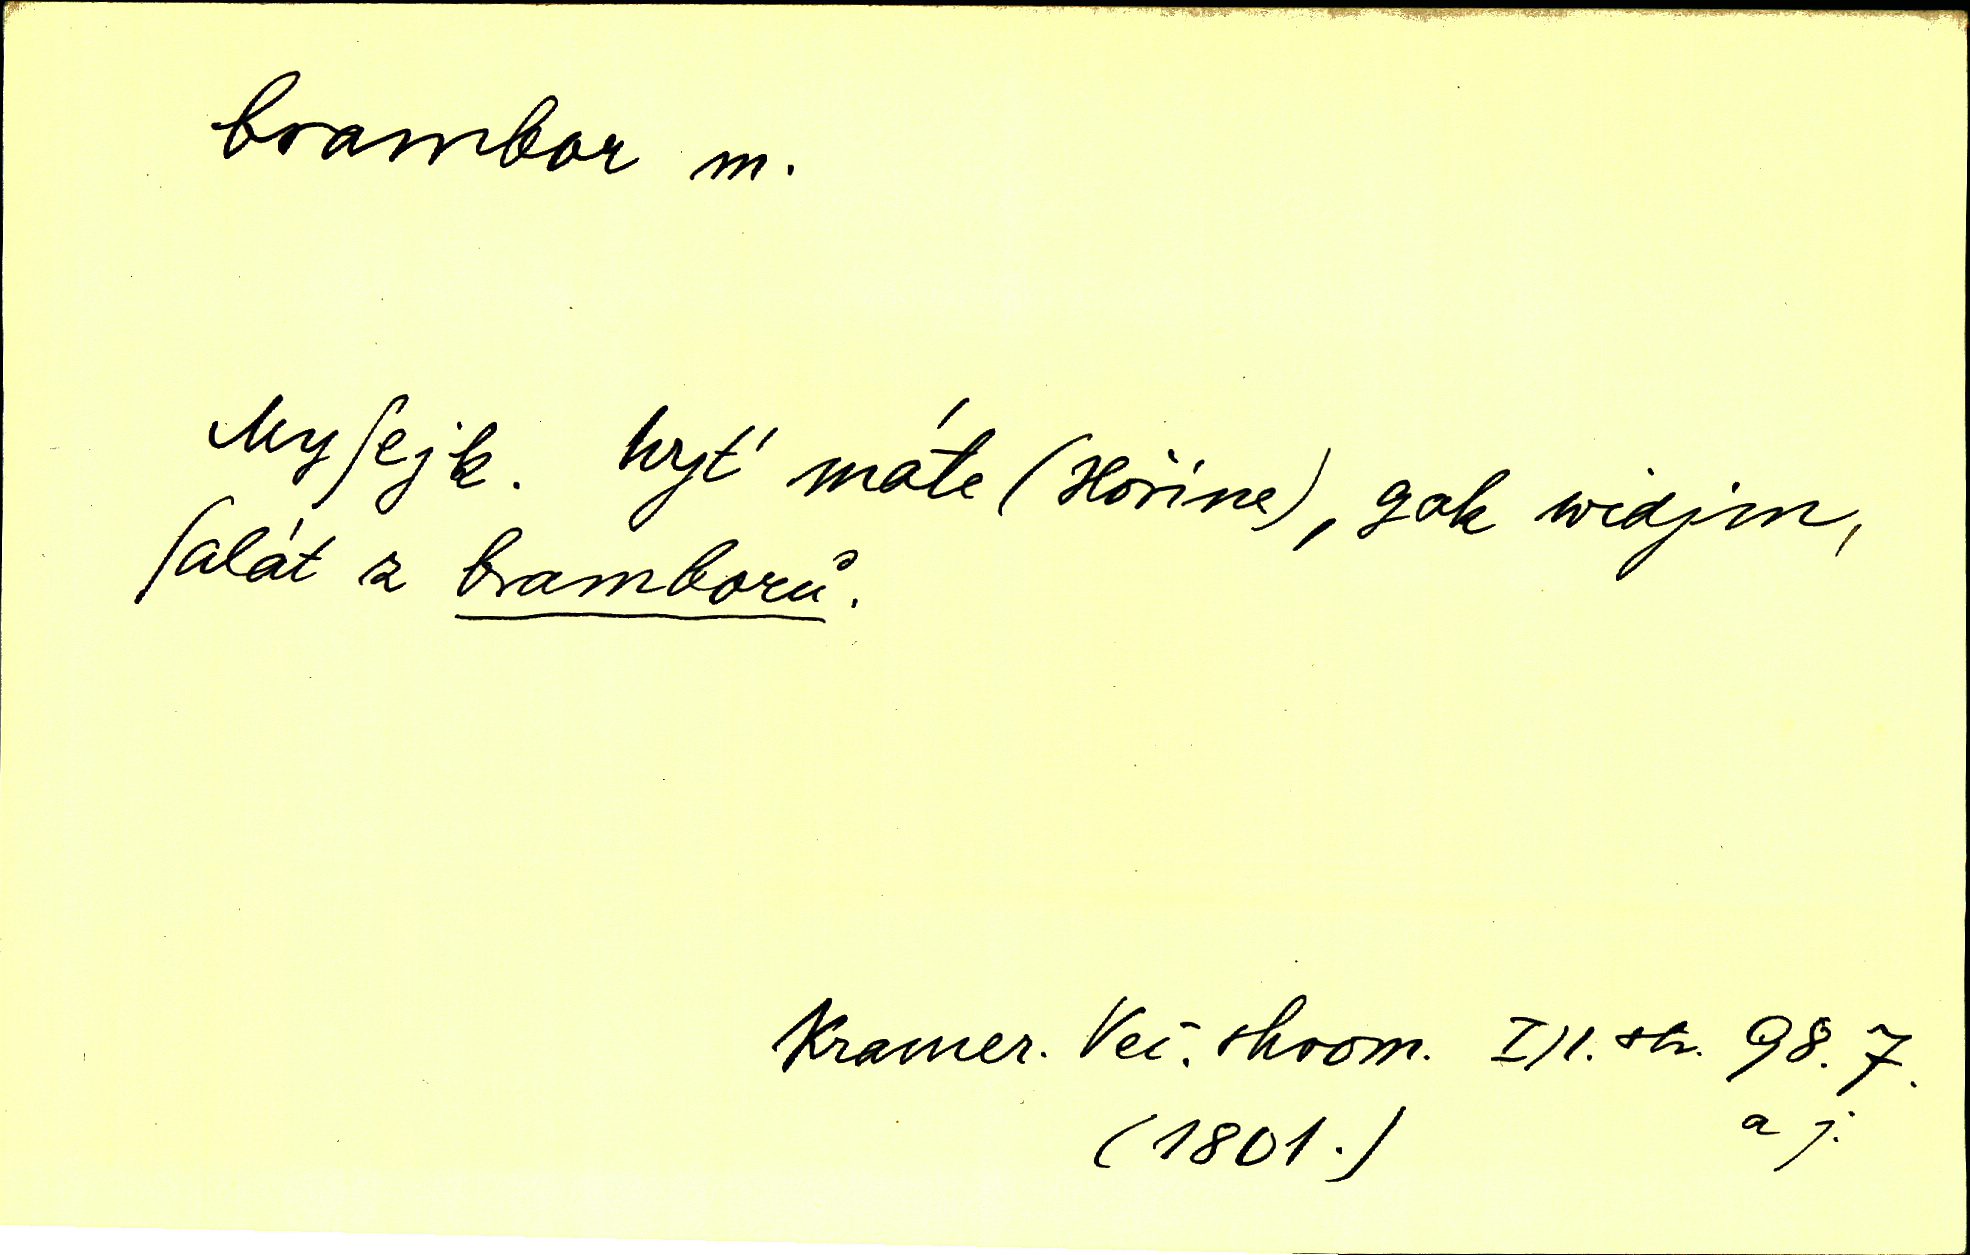 brambor m.
Myſejk. hyť máte (Hořine), gak widjm,
ſalát z bramborů.
Kramer. Več. shrom. III. str. 98. 7.
(1801.) a j.